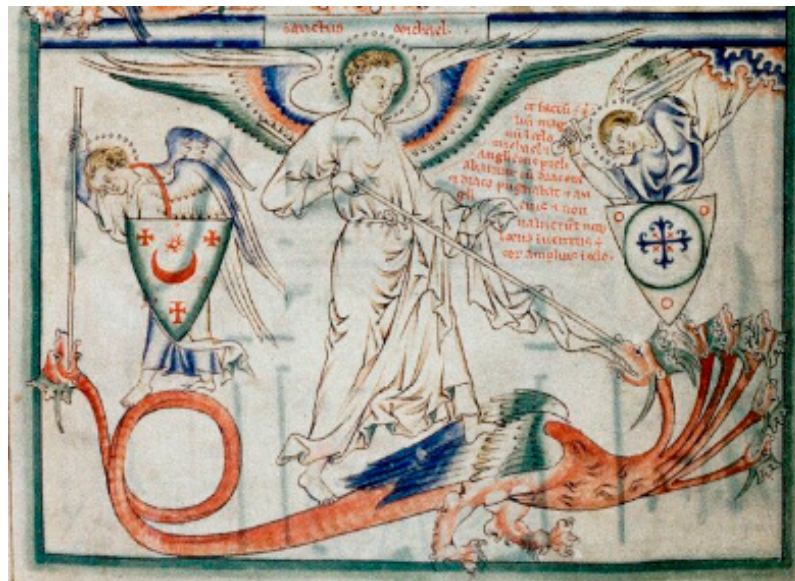 sanctus michael.
et factū
liū mag
nū i celo
michael
angli eius preli
abantur cū dracone
et draco pugnabat
gli eius non
valuerūt neq
locus inventus
eor amplius i celo.